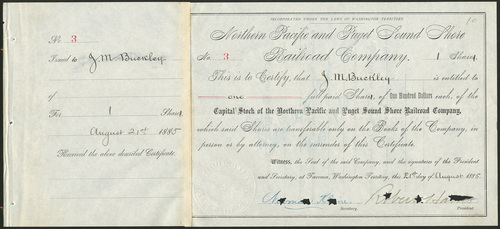 No. 3
Issued to J. M. Buckley
of
For 1 Share
August 21st 1885
Received the above described Certificate.
INCORPORATED UNDER THE LAWS OF WASHINGTON TERRITORY
Northern Pacific and Puget Sound Shore
No. 3 Railroad Company, 1 Share
This is to Certify, that J. M. Buckley is entitled to
one full paid Share, of One Hundred Dollars each, of the
Capital Stock of the Northern Pacific and Puget Sound Shore Railroad Company,
which said Shares are transferable only on the Books of the Company, in
person or by attorney, on the surrender of this Certificate.
Witness, the Seal of the said Company, and the signatures of the President
and Secretary, at Tacoma, Washington Territory, this 21st day of August 1885.
Secretary. President